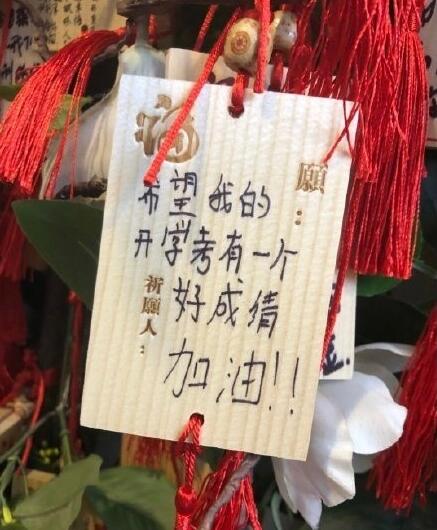 福
願：
希望我的
开学考有一个
好成绩
加油!!
祈願人：